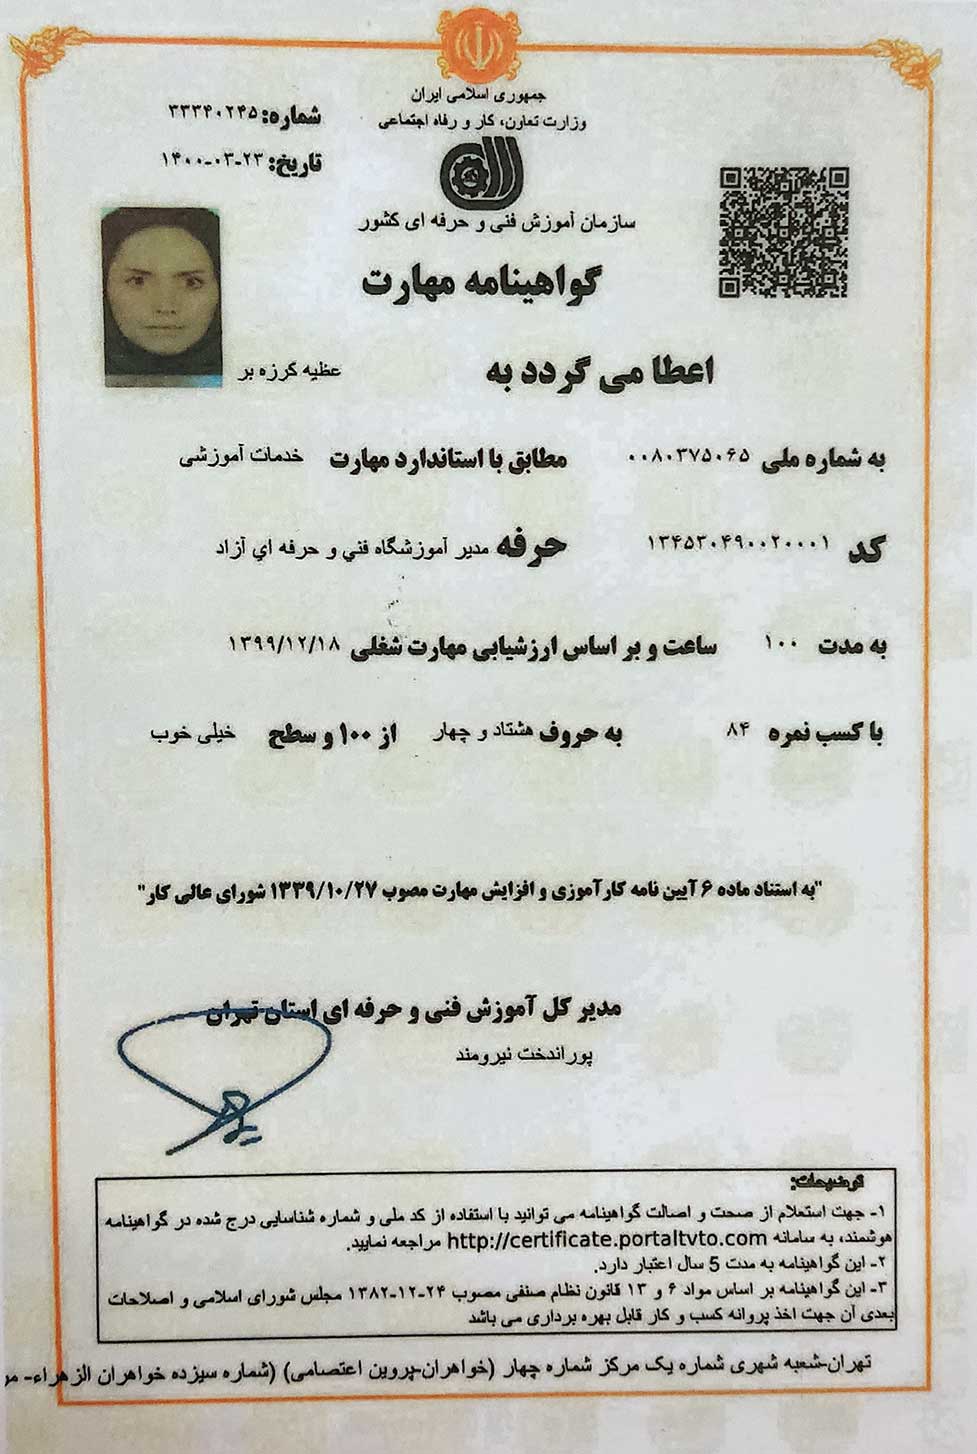 جمهوری اسلامی ایران
وزارت تعاون، کار و رفاه اجتماعی
شماره: ۳۳۳۴۰۲۴۵
تاریخ: ۱۴۰۰-۰۳-۲۳
سازمان آموزش فنی و حرفه ای کشور
گواهینامه مهارت
اعطا می گردد به عظیه گرزه بر
به شماره ملی ۰۰۸۰۳۷۵۰۶۵ مطابق با استاندارد مهارت خدمات آموزشی
کد ۱۳۴۵۳۰۴۹۰۰۲۰۰۰۱ حرفه مدير آموزشگاه فني و حرفه اي آزاد
به مدت ۱۰۰ ساعت و بر اساس ارزشیابی مهارت شغلی ۱۳۹۹/۱۲/۱۸
با کسب نمره ۸۴ به حروف هشتاد و چهار از ۱۰۰ و سطح خیلی خوب
"به استناد ماده ۶ آیین نامه کارآموزی و افزایش مهارت مصوب ۱۳۳۹/۱۰/۲۷ شورای عالی کار"
مدیر کل آموزش فنی و حرفه ای استان تهران
پوراندخت نیرومند
توضیحات:
۱- جهت استعلام از صحت و اصالت گواهینامه می توانید با استفاده از کد ملی و شماره شناسایی درج شده در گواهینامه
هوشمند، به سامانه http://certificate.portaltvto.com مراجعه نمایید.
۲- این گواهینامه به مدت 5 سال اعتبار دارد.
۳- این گواهینامه بر اساس مواد ۶ و ۱۳ قانون نظام صنفی مصوب ۲۴-۱۲-۱۳۸۲ مجلس شورای اسلامی و اصلاحات
بعدی آن جهت اخذ پروانه کسب و کار قابل بهره برداری می باشد
تهران-شعبه شهری شماره یک مرکز شماره چهار (خواهران-پروین اعتصامی) (شماره سیزده خواهران الزهراء- مر